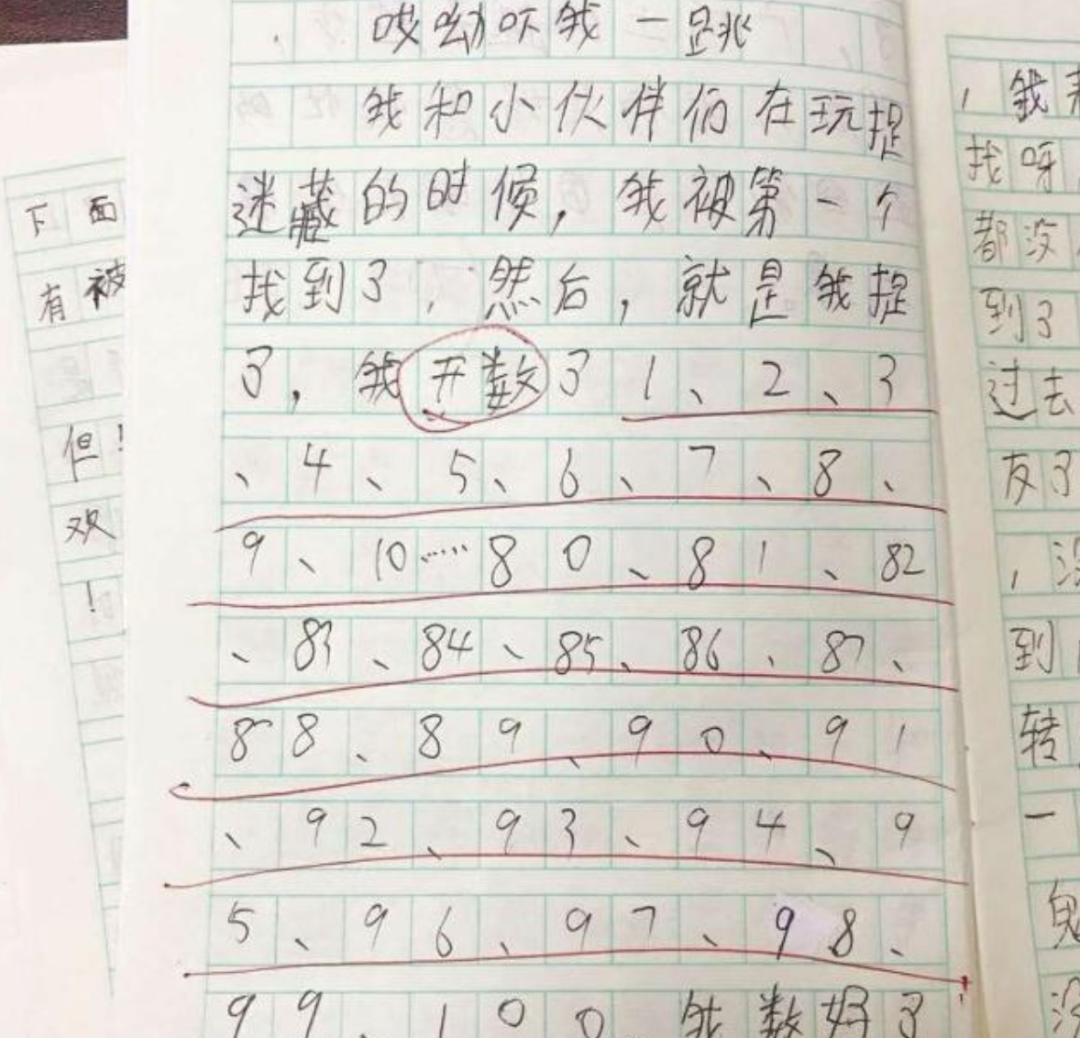 哎呦吓我一跳
我和小伙伴们在玩捉
迷藏的时候，我被第一个
找到了，然后，就是我捉
了，我开数了1、2、3
、4、5、6、7、8、
9、10……80、81、82
、83、84、85、86、87、
88、89、90、91
、92、93、94、9
5、96、97、98、
99、100、我数好了
下面
有被
但！
欢
！
，我
找呀
都没
到了
过去
友了
，没
到
转
一
没